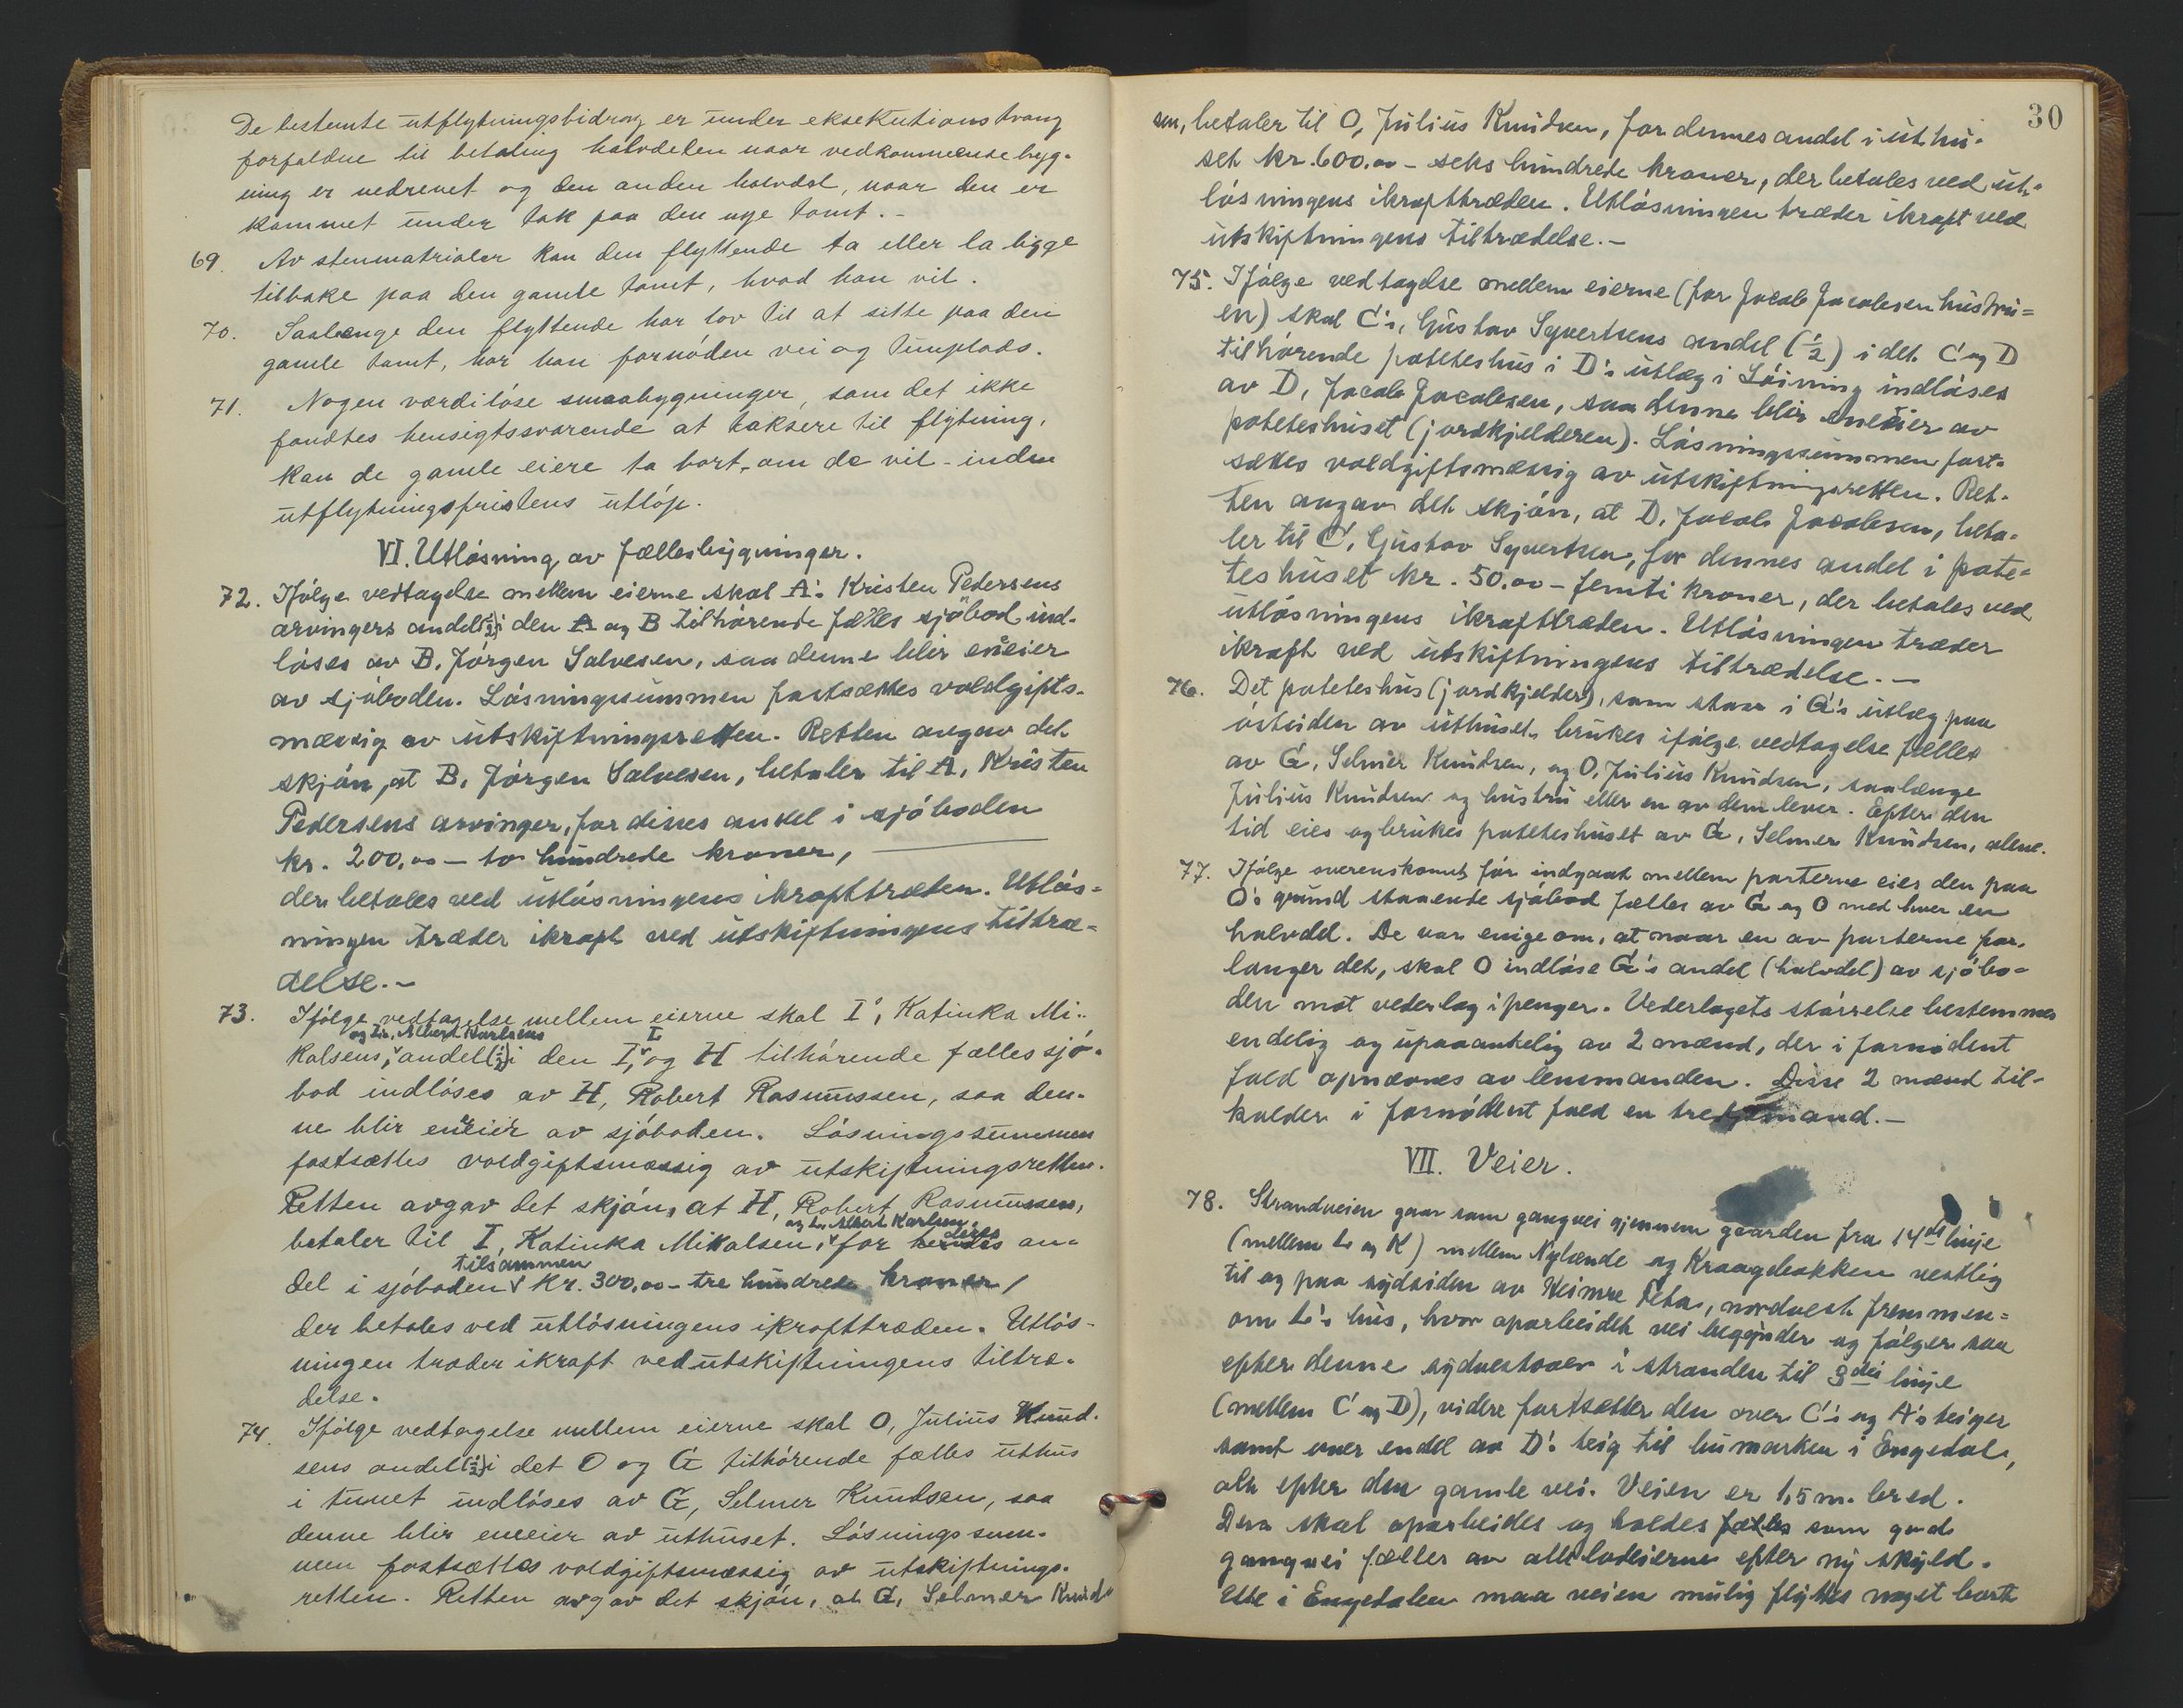 De bestemte utflytningsbidrag er under eksekutionstvang
forfaldne til betaling halvdelen naar vedkommende byg-
ning er nedrevet og den anden halvdel, naar den er
kommet under tak paa den nye tomt.-
69. Av stenmatrialer kan den flyttende ta eller la ligge
tilbake paa den gamle tomt, hvad han vil.
70. Saalænge den flyttende har lov til at sitte paa den
gamle tomt, har han fornöden vei og tunplads.
71. Nogen værdilöse smaabygninger, som det ikke
fandtes hensigtssvarende at taksere til flytning,
kan de gamle eiere ta bort, om de vil - inden
utflytningsfristens utlöp.
VI. Utlösning av fællesbygninger.
72. Ifölge vedtagelse mellem eierne skal A's Kristen Pedersens
arvingers andel (1/2) i den A og B tilhörende fælles sjöbod ind-
löses av B. Jörgen Salvesen, saa denne blir eneeier
av sjöboden. Lösningssummen fastsættes voldgifts-
mæssig av utskiftningsretten. Retten avgav det
skjön, at B, Jörgen Salvesen, betaler til A, Kristen
Pedersens arvinger, for disses andel i sjöboden
kr. 200,00 - to hundrede kroner,
der betales ved utlösningens ikrafttræden. Utlös-
ningen træder ikraft ved utskiftningens tiltræ-
delse.-
73. Ifölge vedtagelse mellem eierne skal I', Katinka Mi-
og L's, Albert Karlsens L
kalsens, andel (1/2) i den I, og H tilhörende fælles sjö-
bod indlöses av H, Robert Rasmussen, saa den-
ne blir eneeier av sjöboden. Lösningssummen
fastsættes voldgiftsmæssig av utskiftningsretten.
Retten avgav det skjön, at H, Robert Rasmussen,
og L, Albert Karlsen, deres
betaler til I, Katinka Mikalsen, for hendes an-
tilsammen
del i sjöboden kr. 300,00 - tre hundrede kroner,
der betales ved utlösningens ikrafttræden. Utlös-
ningen træder ikraft ved utskiftningens tiltræ-
delse.
74. Ifölge vedtagelse mellem eierne skal O, Julius Knud-
sens andel (1/2) i det O og G tilhörende fælles uthus
i tunet indlöses av G, Selmer Knudsen, saa
denne blir eneeier av uthuset. Lösningssum-
men fastsættes voldgiftsmæssig av utskiftnings-
retten. Retten avgav det skjön, at G, Selmer Knud-
30
sen, betaler til O, Julius Knudsen, for dennes andel i uthu-
set kr. 600.00 - seks hundrede kroner, der betales ved ut-
lösningens ikrafttræden. Utlösningen træder ikraft ved
utskiftningens tiltrædelse.-
75. Ifölge vedtagelse mellem eierne (for Jacob Jacobsen hustru-
en) skal C's, Gustav Syvertsens andel (1/2) i det C og D
tilhörende poteteshus i D's utlæg i Löining indlöses
av D, Jacob Jacobsen, saa denne blir eneeier av
poteteshuset (jordkjelderen). Lösningssummen fast-
sættes voldgiftsmæssig av utskiftningsretten. Ret-
ten avgav det skjön, at D, Jacob Jacobsen, beta-
ler til C, Gustav Syvertsen, for dennes andel i pote-
teshuset kr. 50.00 - femti kroner, der betales ved
utlösningens ikrafttræden. Utlösningen træder
ikraft ved utskiftningens tiltrædelse.-
76. Det poteteshus (jordkjelder), som staar i G's utlæg paa
östsiden av uthuset, brukes ifölge vedtagelse fælles
av G, Selmer Knudsen, og O, Julius Knudsen, saalænge
Julius Knudsen og hustru eller en av dem lever. Efter den
tid eies og brukes poteteshuset av G, Selmer Knudsen, alene.
77. Ifölge overenskomst för indgaat mellem parterne eies den paa
O's grund staaende sjöbod fælles av G og O med hver en
halvdel. De var enige om, at naar en av parterne for-
langer det, skal O indlöse G's andel (halvdel) av sjöbo-
den mot vederlag i penger. Vederlagets störrelse bestemmes
endelig og upaaankelig av 2 mænd, der i fornödent
fald opnævnes av lensmanden. Disse 2 mænd til-
kalder i fornödent fald en tredjemand.-
VII. Veier.
78. Strandveien gaar som gangvei gjennem gaarden fra 14de linje
(mellem L og K) mellem Nylænde og Kraagebakken vestlig
til og paa sydsiden av Heimre Feta, nordvest fremmen-
om L's hus, hvor oparbeidet vei begynder og fölger saa
efter denne sydvestover i stranden til 3die linje
(mellem C og D), videre fortsætter den over C's og A's teiger
samt over endel av D's teig til humarken i Engedal,
alt efter den gamle vei. Veien er 1,5 m. bred.
Den skal oparbeides og holdes fælles som god
gangvei fælles av alle lodeierne efter ny skyld.
Ette i Engedalen maa veien mulig flyttes noget bort